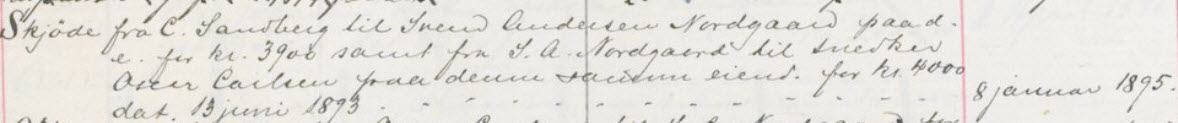 Skjöde fra C. Sandberg til Svend Andersen Nordgaard paa d.
e. for kr. 3900 samt fra S. A. Nordgaard til snedker
Oscar Carlsen paa denne samme eiend. for kr. 4000
dat. 13 juni 1893 - - - - - - - - - - - 8 januar 1895.